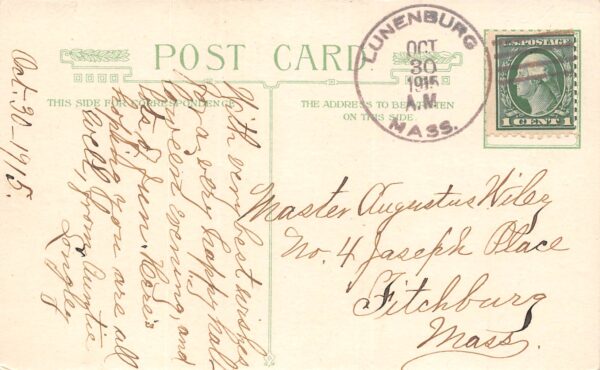 POST CARD
THIS SIDE FOR CORRESPONDENCE
THE ADDRESS TO BE WRITTEN
ON THIS SIDE
LUNENBURG
OCT
30
1915
A.M.
MASS.
U.S. POSTAGE
1 CENT 1
Oct-30-1915.
With very best wishes
for a very happy hall-
oween evening, and
lots of fun. Here's
hoping you are all
well, from Auntie
Longley
Master Augustus Wiley
No. 4 Joseph Place
Fitchburg
Mass.